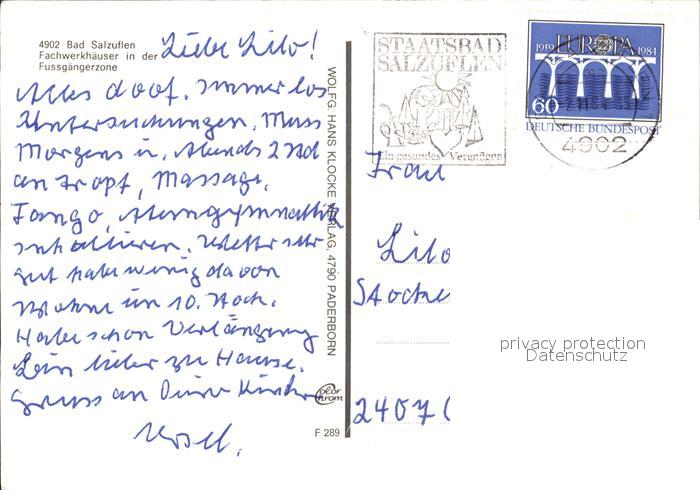 4902 Bad Salzuflen
Fachwerkhäuser in der
Fussgängerzone
Liebe Lilo!
Alles doof. Immer los
Untersuchungen. Muss
Morgens u. Abends 2 Std
an Tropf, Massage,
Fango, Atemgymnastik
inhalieren. Wetter sehr
gut habe wenig davon
Wohne im 10. Stock.
Habe schon Verlängerung
Bin lieber zu Hause.
Gruss an Deine Kinder
WOLFG. HANS KLOCKE VERLAG, 4790 PADERBORN
color
chrom
F 289
STAATSBAD
SALZUFLEN
Ein gesundes Vergnügen
1959 EUROPA 1984
60
DEUTSCHE BUNDESPOST
4902
Frau
Lilo
2407
privacy protection
Datenschutz